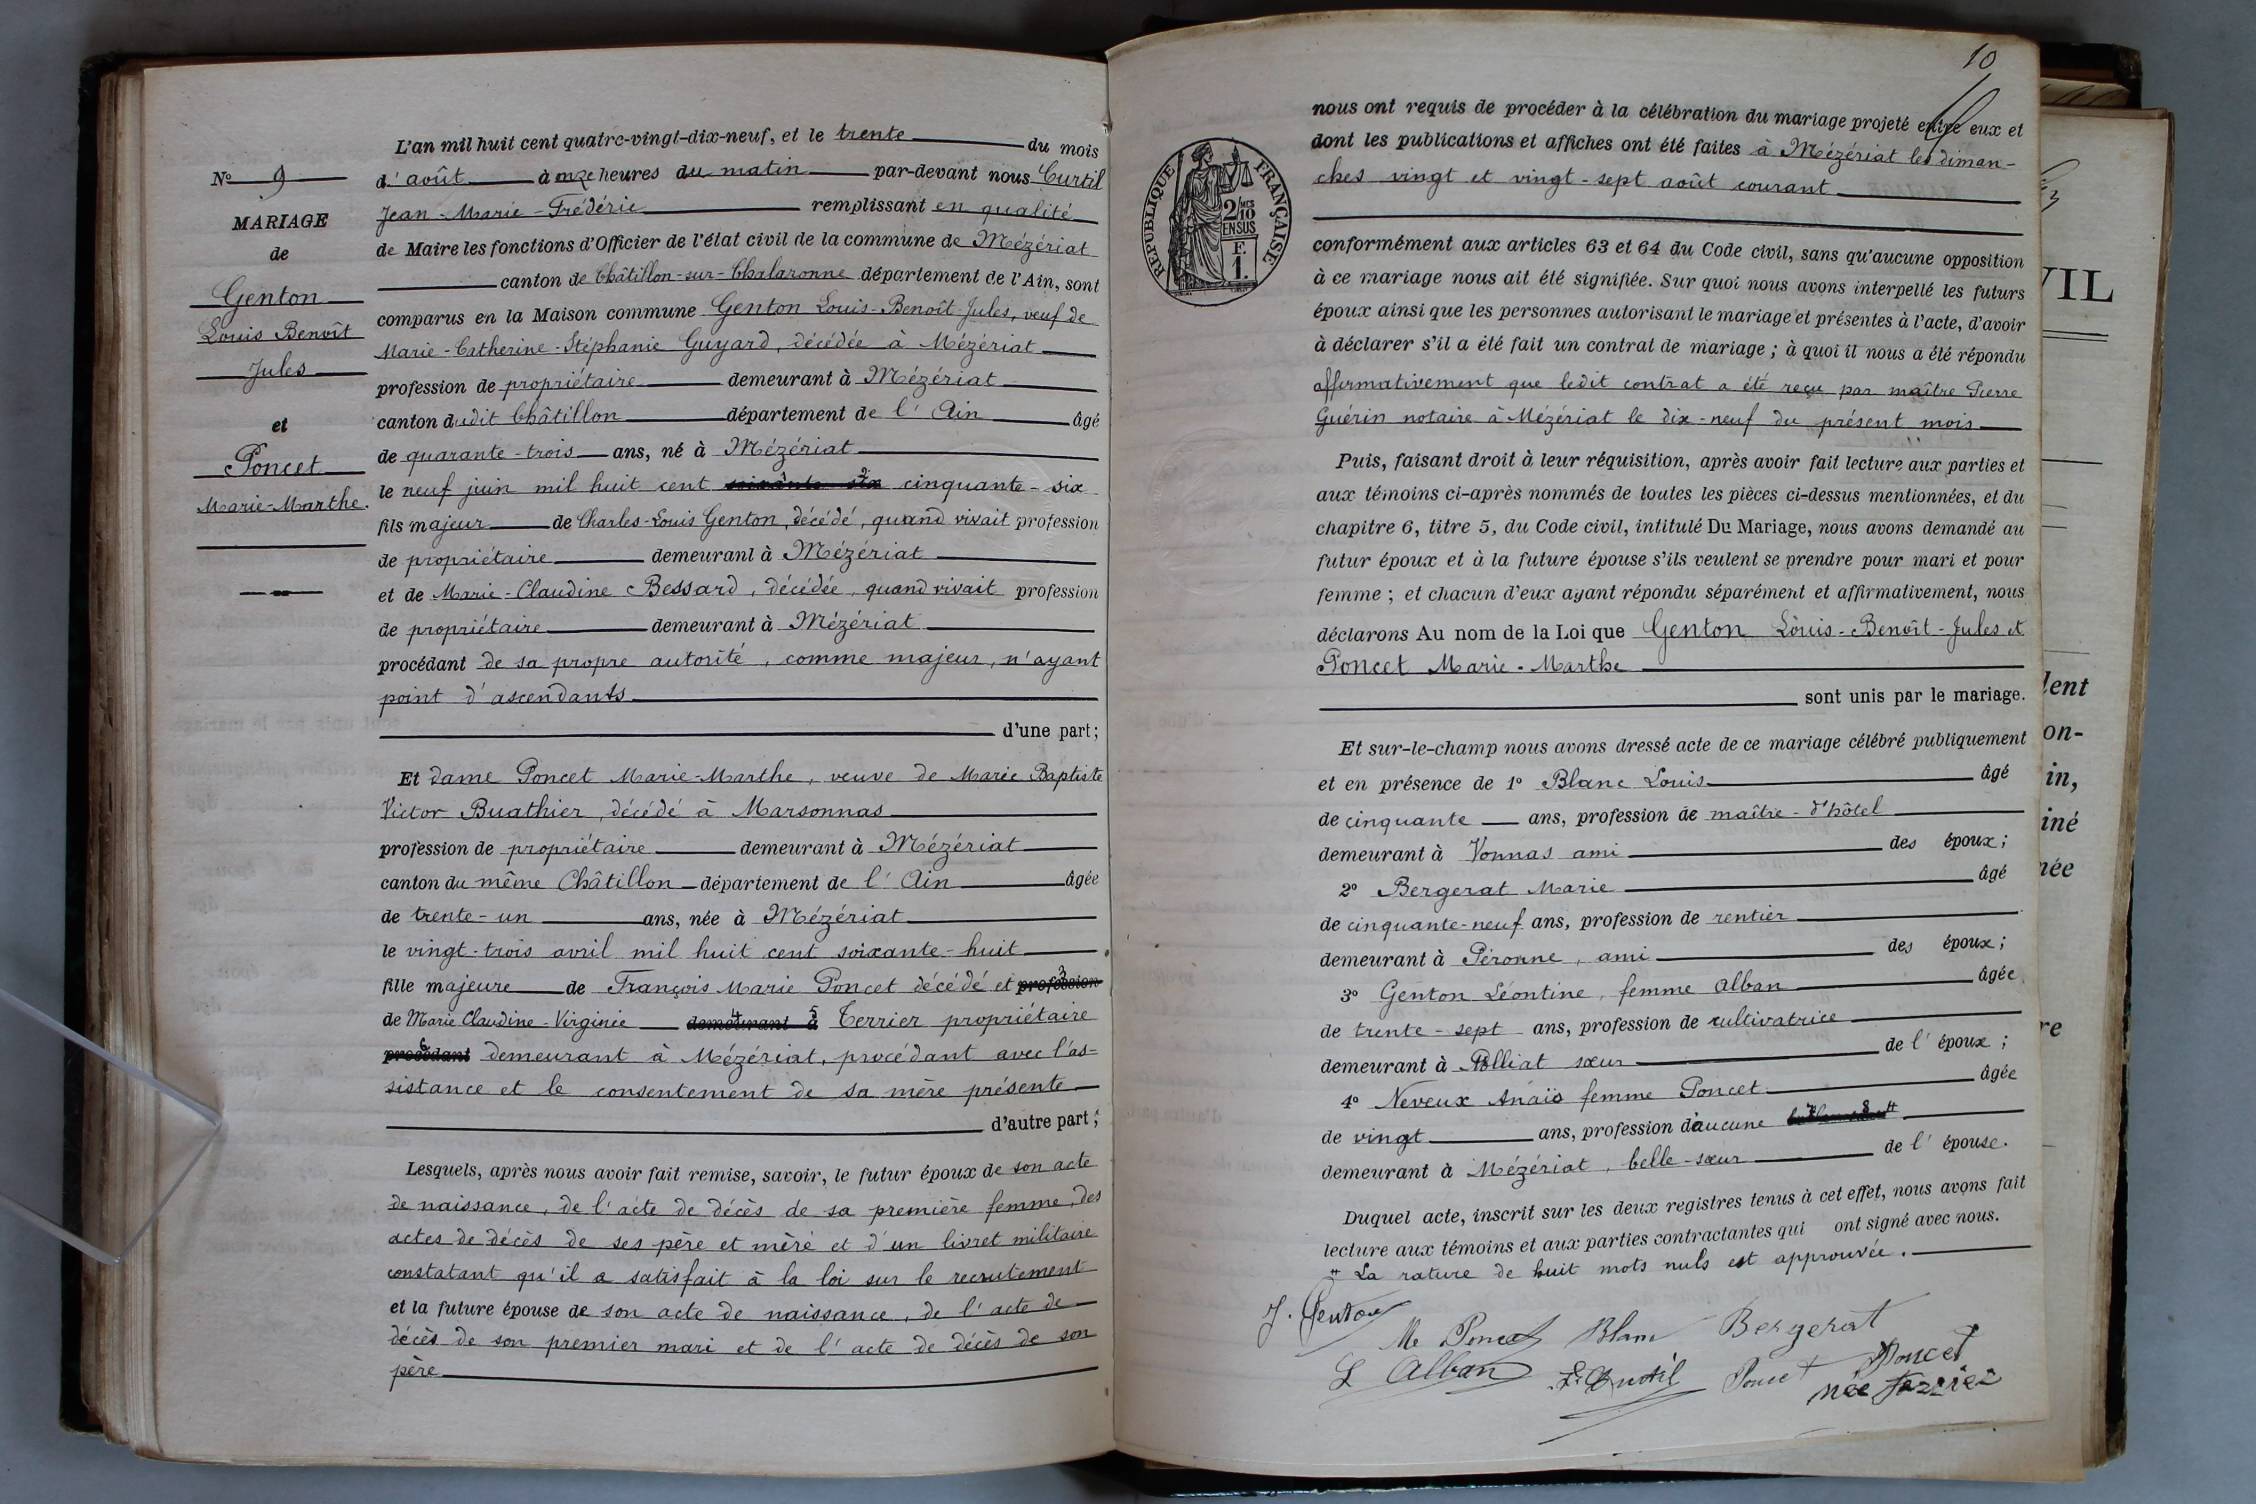 L'an mil huit cent quatre-vingt-dix-neuf, et le trente du mois
d'août à onze heures du matin par-devant nous Curtil
Jean-Marie-Frédéric remplissant en qualité
de Maire les fonctions d'Officier de l'état civil de la commune de Mézériat
canton de Châtillon-sur-Chalaronne département de l'Ain, sont
comparus en la Maison commune Genton Louis-Benoît-Jules, veuf de
Marie-Catherine-Stéphanie Guyard, décédée à Mézériat
profession de propriétaire demeurant à Mézériat
canton dudit Châtillon département de l'Ain âgé
de quarante-trois ans, né à Mézériat
le neuf juin mil huit cent soixante six cinquante-six
fils majeur de Charles-Louis Genton, décédé, quand vivait profession
de propriétaire demeurant à Mézériat
et de Marie-Claudine Bessard, décédée, quand vivait profession
de propriétaire demeurant à Mézériat
procédant de sa propre autorité, comme majeur, n'ayant
point d'ascendants
d'une part;
Et dame Poncet Marie-Marthe, veuve de Marie Baptiste
Victor Buathier, décédé à Marsonnas
profession de propriétaire demeurant à Mézériat
canton du même Châtillon département de l'Ain âgée
de trente-un ans, née à Mézériat
le vingt-trois avril mil huit cent soixante-huit
fille majeure de François Marie Poncet décédé et profession
de Marie Claudine-Virginie demeurant à Terrier propriétaire
procédant demeurant à Mézériat, procédant avec l'as-
sistance et le consentement de sa mère présente
d'autre part;
Lesquels, après nous avoir fait remise, savoir, le futur époux de son acte
de naissance, de l'acte de décès de sa première femme, des
actes de décès de ses père et mère et d'un livret militaire
constatant qu'il a satisfait à la loi sur le recrutement
et la future épouse de son acte de naissance, de l'acte de
décès de son premier mari et de l'acte de décès de son
père
No 9
MARIAGE
de
Genton
Louis Benoît
Jules
et
Poncet
Marie-Marthe.
10
RÉPUBLIQUE FRANÇAISE
2/10
MES
EN SUS
F.
1.
nous ont requis de procéder à la célébration du mariage projeté entre eux et
dont les publications et affiches ont été faites à Mézériat les diman-
ches vingt et vingt-sept août courant
conformément aux articles 63 et 64 du Code civil, sans qu'aucune opposition
à ce mariage nous ait été signifiée. Sur quoi nous avons interpellé les futurs
époux ainsi que les personnes autorisant le mariage et présentes à l'acte, d'avoir
à déclarer s'il a été fait un contrat de mariage; à quoi il nous a été répondu
affirmativement que ledit contrat a été reçu par maître Pierre
Guérin notaire à Mézériat le dix-neuf du présent mois
Puis, faisant droit à leur réquisition, après avoir fait lecture aux parties et
aux témoins ci-après nommés de toutes les pièces ci-dessus mentionnées, et du
chapitre 6, titre 5, du Code civil, intitulé Du Mariage, nous avons demandé au
futur époux et à la future épouse s'ils veulent se prendre pour mari et pour
femme; et chacun d'eux ayant répondu séparément et affirmativement, nous
déclarons Au nom de la Loi que Genton Louis-Benoît-Jules et
Poncet Marie-Marthe
sont unis par le mariage.
Et sur-le-champ nous avons dressé acte de ce mariage célébré publiquement
et en présence de 1o Blanc Louis âgé
de cinquante ans, profession de maître-d'hôtel
demeurant à Vonnas ami des époux;
2o Bergerat Marie âgé
de cinquante-neuf ans, profession de rentier
demeurant à Péronne, ami des époux;
3o Genton Léontine, femme Alban âgée
de trente-sept ans, profession de cultivatrice
demeurant à Polliat sœur de l'époux;
4o Neveux Anaïs femme Poncet âgée
de vingt ans, profession d'aucune
demeurant à Mézériat, belle-sœur de l'épouse.
Duquel acte, inscrit sur les deux registres tenus à cet effet, nous avons fait
lecture aux témoins et aux parties contractantes qui ont signé avec nous.
# La rature de huit mots nuls est approuvée.
J. Genton
Me Poncet Blanc Bergerat
L Alban F. Curtil Poncet Poncet
née Terrier
VIL
lent
on-
in,
iné
née
re